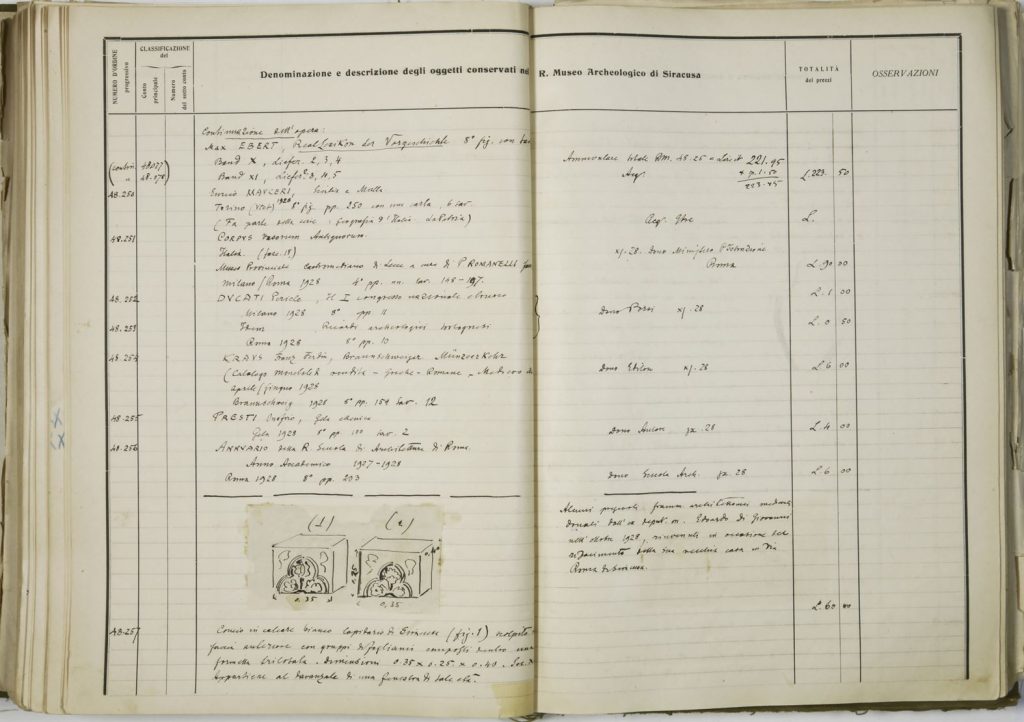 NUMERO D'ORDINE
progressivo
CLASSIFICAZIONE
del
Conto
principale
Numero
del sotto conto
Denominazione e descrizione degli oggetti conservati nel R. Museo Archeologico di Siracusa
TOTALITÀ
dei prezzi
OSSERVAZIONI
Continuazione dell'opera:
Max EBERT, Real Lexikon der Vorgeschichte 8° fig. con
Band X, Liefer. 2, 3, 4
Band XI, Liefer. 3, 4, 5
48.077
48.078
Ammontare totale RM. 48.25 = Lire it 221.95
Acq.
223.45
L. 223. 50
48.250
MAUCERI, Sicilia e Malta
Torino 1928 8° fig. pp. 250 con una carta, 6 tav.
(Fa parte della serie: Geografia d'Italia. La Patria)
Acq. L.
48.251
CORPUS Vasorum Antiquorum.
Italia. (fasc. IV)
Museo Provinciale Castromediano di Lecce a cura di P ROMANELLI
Milano/Roma 1928 4° pp. tav.
XI.28. Dono Ministero P Istruzione
Roma
L. 90 00
48.252
DUCATI Pericle, Il I congresso nazionale etrusco
Milano 1928 8° pp. 11
L. 1 00
48.253
Idem Ricordi archeologici bolognesi
Roma 1928 8° pp. 10
Dono XI.28
L. 0 50
48.254
KRAUS Franz Ferd., Braunschweiger Münzverkehr
(Catalogo vendita - Greche - Romane - Medioev
Aprile/giugno 1928
Braunschweig 1928 8° pp. 154 tav. 12
Dono XI.28
L. 6 00
48.255
PRESTI Onofrio, Gela
Gela 1928 8° pp. 130 tav. 2
Dono Autore XI.28
L. 4 00
48.256
ANNUARIO della R. Scuola di Architettura di Roma.
Anno Accademico 1927-1928
Roma 1928 8° pp. 203
Dono Scuola Arch. 28
L. 6 00
(1) (2)
0,35 0,25 0,35 0,40
Alcuni framm. architettonici medioevali
donati dall'ex deput. on. Edoardo Di Giovanni
nell'ottobre 1928, rinvenuti in occasione del
rifacimento della sua vecchia casa in Via
Roma di Siracusa.
L. 60 00
48.257
Concio in calcare bianco lapidario di Siracusa (fig. 1) scolpito
faccia anteriore con gruppi di fogliami composti dentro una
formella trilobata. Dimensioni 0.35 x 0.25 x 0.40.
Appartiene al davanzale di una finestra di tale età.
XX